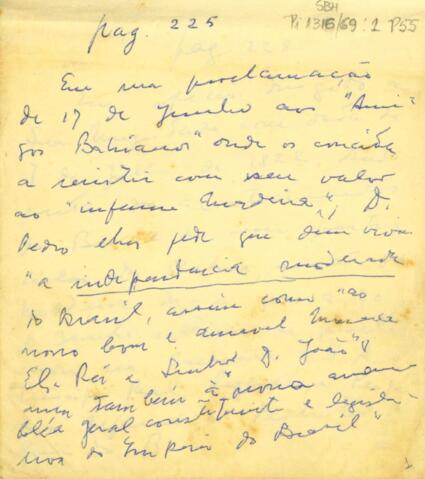 SBH
Pi 1316/69 : 1 P55
pag. 225
Em sua proclamação
de 17 de Junho aos "Ami-
gos Bahianos" onde os convida
a resistir com seu valor
ao "infame Madeira", D.
Pedro elhes pede que dêm vivas
"a independencia moderada
do Brasil, assim como "ao
nosso bom e amavel Monarca
El-Rei o Senhor D. João"
também à "nossa assem
bléa geral constituinte e legisla-
tiva do Imperio do Brasil"
1